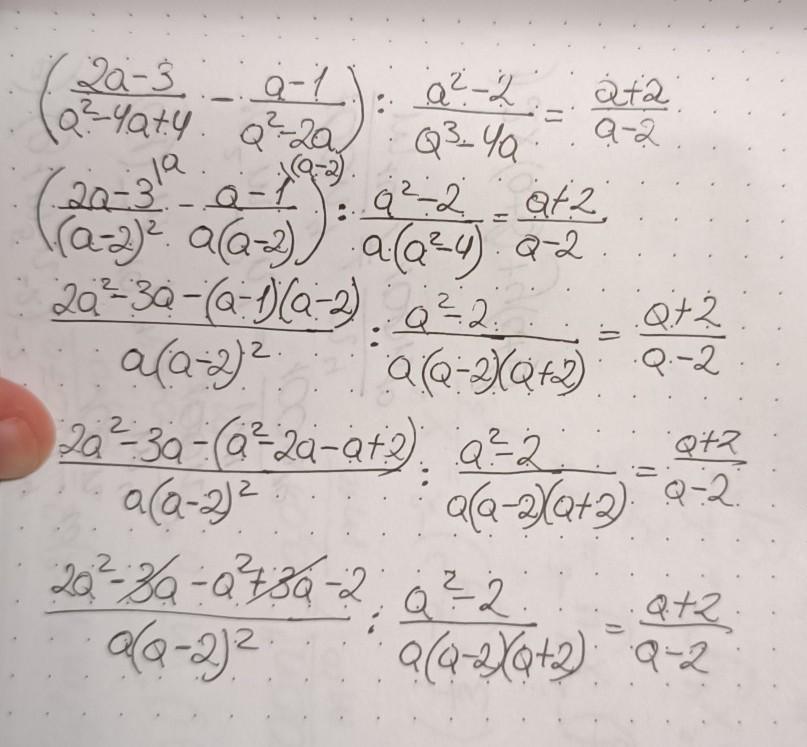 (2a-3/a²-4a+4 - a-1/a²-2a) : a²-2/a³-4a = a+2/a-2
(2a-3\a/(a-2)² - a-1\(a-2)/a(a-2)) : a²-2/a(a²-4) = a+2/a-2
2a²-3a-(a-1)(a-2)/a(a-2)² : a²-2/a(a-2)(a+2) = a+2/a-2
2a²-3a-(a²-2a-a+2)/a(a-2)² : a²-2/a(a-2)(a+2) = a+2/a-2
2a²-3a-a²+3a-2/a(a-2)² : a²-2/a(a-2)(a+2) = a+2/a-2